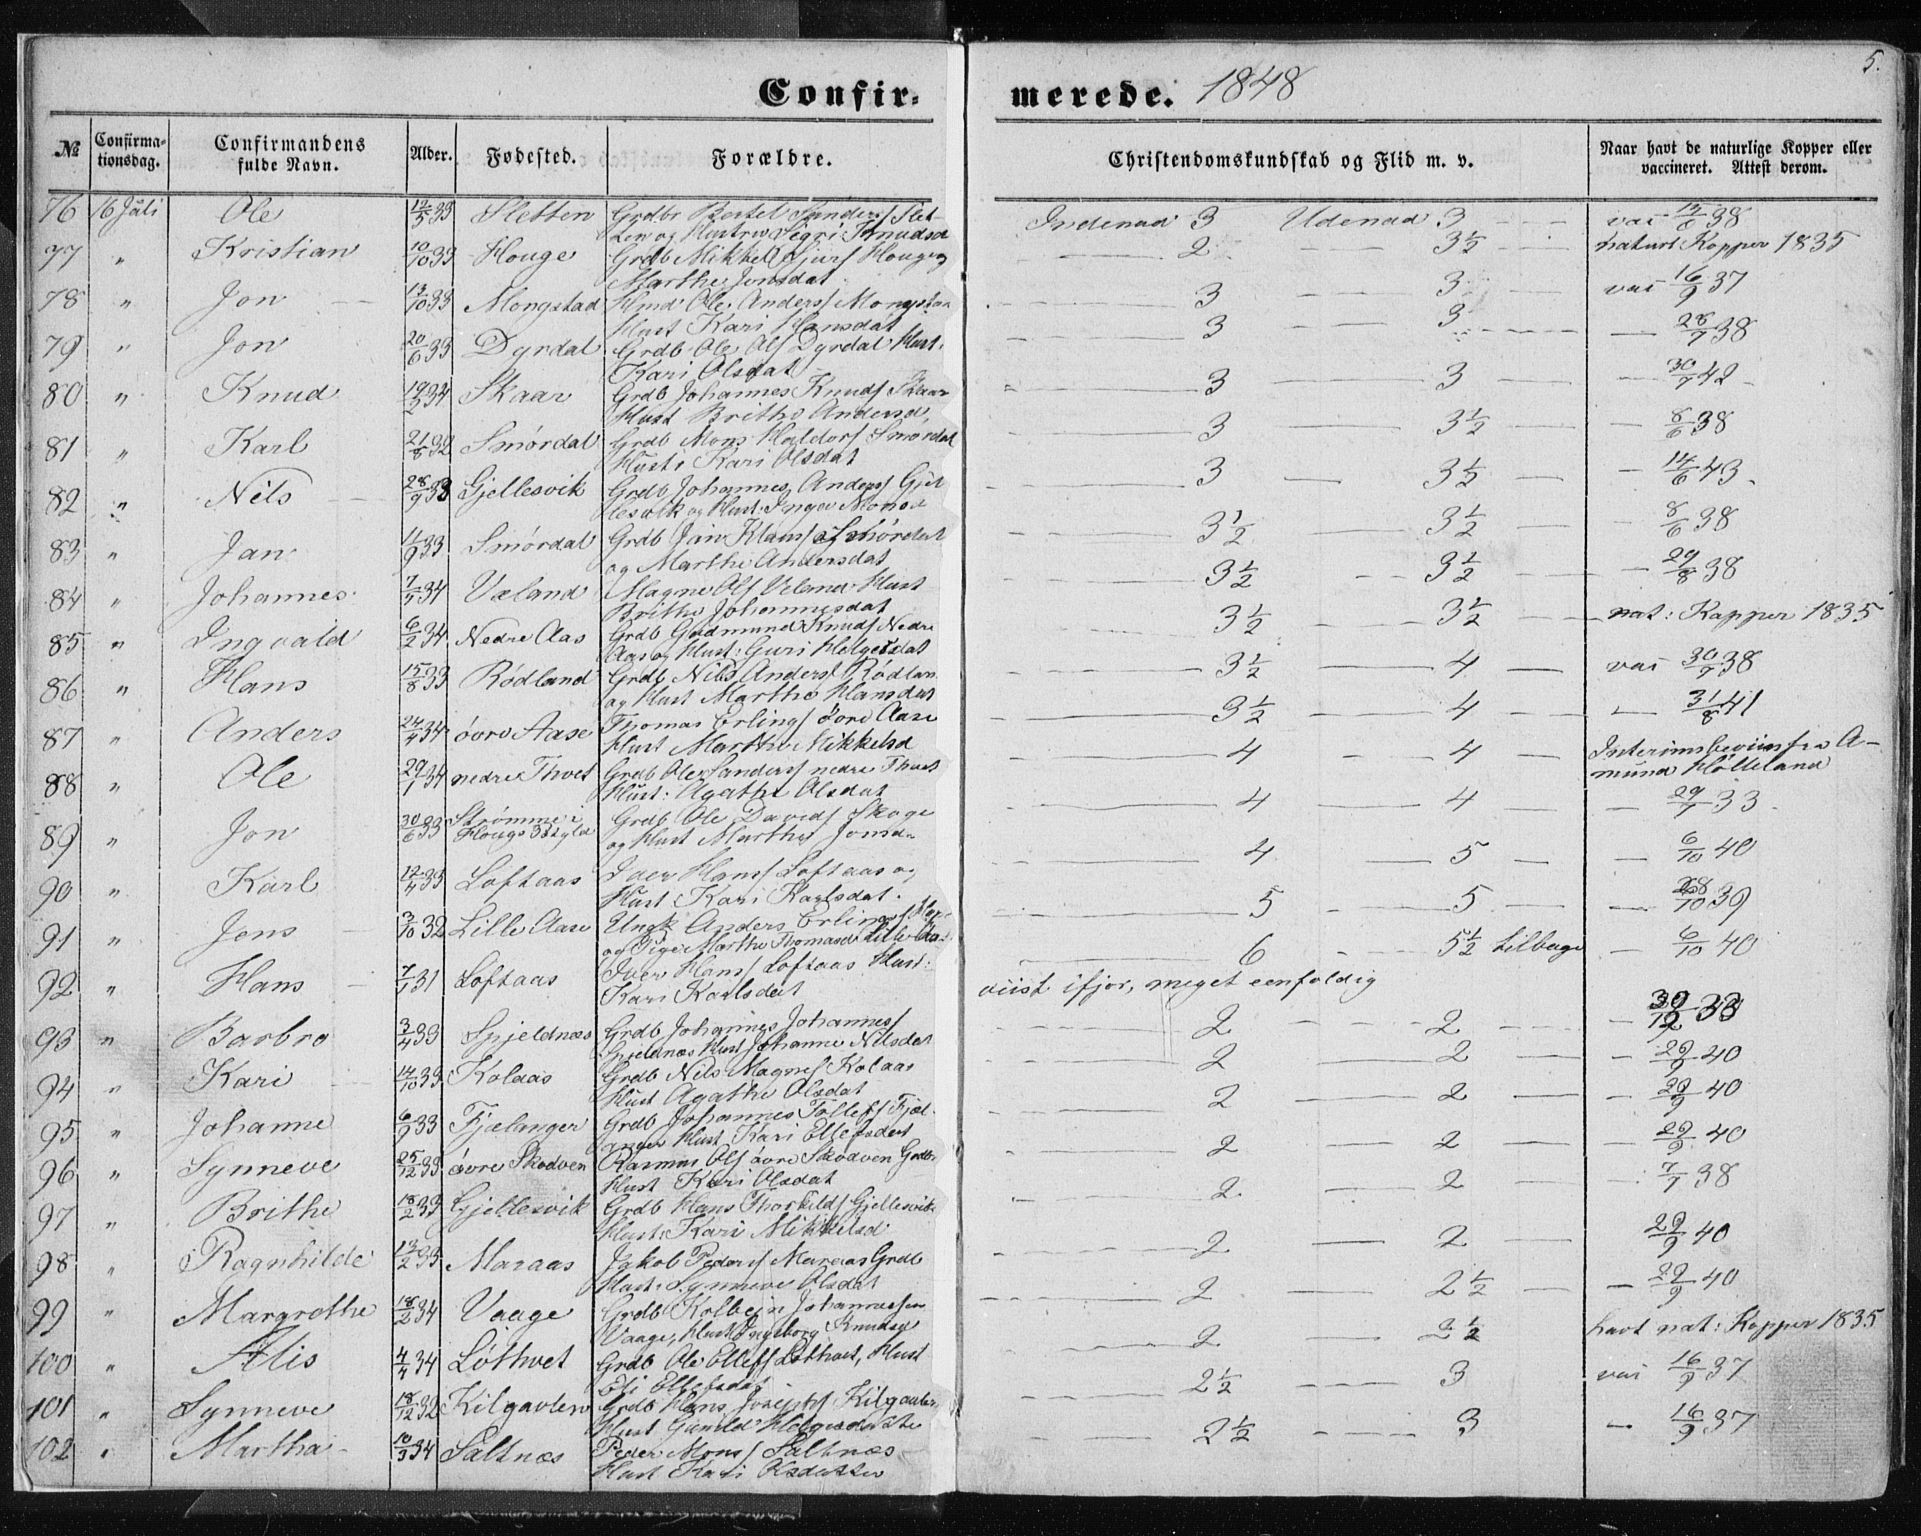 Confir- merede. 1848
5.
№ Confirma-tionsdag. Confirmandens fulde Navn. Alder. Fødested. Forældre. Christendomskundskab og Flid m. v. Naar havt de naturlige Kopper eller vaccineret. Attest derom.
76 16 Juli Ole 12/5 33 Sletten Grdbr Bertel Sanders Slet- Indenad 3 Udenad 3 vac 12/6 38
ten og Hustru Sigri Knudsd
77 " Kristian 10/10 33 Houge Grdb Mikkel Sjurs Houge og 2 3½ naturl Kopper 1835
Marthe Jonsdat
78 " Jon 13/10 33 Mongstad Hmd Ole Anders Mongstad 3 3 vac 16/9 37
Hust Kari Hansdat
79 " Jon 20/6 33 Dyrdal Grdb Ole Ols Dyrdal Hust. 3 3 28/7 38
Kari Olsdat
80 " Knud 19/2 34 Skaar Grdb Johannes Knuds Skaar 3 3 30/7 42
Hust Brithe Andersd.
81 " Karl 21/8 32 Smørdal Grdb Mons Haldors Smørdal 3 3½ 8/6 38
Hust: Kari Olsdat
82 " Nils 28/9 33 Gjellesvik Grdb Johannes Anders Gjel- 3 3½ 14/6 43
lesvik og Hust: Inger Monsd
83 " Jan 11/9 33 Smørdal Grdb Jan Klaus Smørdal 3½ 3½ 8/6 38
og Marthe Andersdat
84 " Johannes 7/7 34 Væland Magne Ols Veland Hust 3½ 3½ 29/8 38
Brithe Johannesdat
85 " Ingvald 6/2 34 Nedre Aas Grdb Gudmund Knuds Nedre 3½ 3½ nat: Kopper 1835
Aas og Hust: Guri Helgesdat
86 " Hans 15/8 33 Rødland Grdb Nils Anders Rødlan 3½ 4 vac 30/7 38
og Hust Marthe Hansdat
87 " Anders 24/4 34 øvre Aase Thomas Erlings øvre Aase 3½ 4 31/8 41
Hust Marthe Mikkelsd
88 " Ole 29/1 34 nedre Thvet Grdb Ole Sanders nedre Thvet 4 4 Interimsbeviis fra A-
Hust: Agathe Olsdat mund Hølleland
89 " Jon 30/6 33 Strømme i Grdb Ole Davids Skage 4 4 29/7 33
Hougs Skyld og Hust Marthe Jonsd
90 " Karl 12/4 33 Loftaas Iver Hans Loftaas og 4 5 6/10 40
Hust Kari Karlsdat.
91 " Jens 3/10 32 Lille Aase Ungk Anders Erlings 5 5 28/10 39
og Pige Marthe Thomasd Lille Aa
92 " Hans 7/1 31 Loftaas Iver Hans Loftaas Hust: 6 5½ tilbage 6/10 40
Kari Karlsdat viist ifjor, meget eenfoldig
93 " Barbro 3/4 33 Spjeldnæs Grdb Johannes Johannes 2 2 30/12 33
Spjeldnæs Hust Johanne Nilsdat
94 " Kari 14/10 33 Kolaas Grdb Nils Magnes Kolaas 2 2 29/9 40
Hust Agathe Olsdat
95 " Johanne 6/9 33 Fjelanger Grdb Johannes Tollefs Fjel- 2 2 29/9 40
anger Hust Kari Ellefsdat
96 " Synneve 25/12 33 øvre Skodven Rasmus Ols øvre Skodven Grdb. 2 2 29/9 40
Hust Kari Olsdat
97 " Brithe 18/2 33 Gjellesvik Grdb Hans Thorkilds Gjellesvik 2 2 7/7 38
Hust: Kari Mikkelsd
98 " Ragnhilde 13/2 35 Maraas Jakob Peders Maraas Grdb 2 2 29/9 40
Hust: Synneve Olsdat
99 " Margrethe 18/2 34 Vaage Grdb Kolbein Johannessen 2 2½ 29/9 40
Vaage, Hust Ingeborg Knudsd
100 " Alis 4/4 34 Løthvet Grdb Ole Ellefs Løthvet, Hust 2 2½ havt nat: Kopper 1835
Eli Ellefsdat
101 " Synneve 18/12 32 Kilgavlen Grdb Hans Josephs Kilgavlen 2½ 3 vac 16/9 37
Hust Gunild Helgesdatte
102 " Martha 10/3 34 Saltnæs Peder Mons Saltnæs 2½ 3 16/9 37
Hust Kari Olsdatter